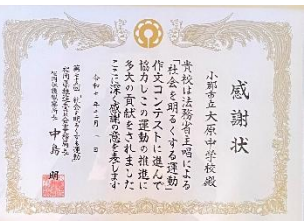 感謝状
小郡市立大原中学校殿
貴校は法務省主唱による
「社会を明るくする運動」
作文コンテストに進んで
協力しこの運動の推進に
多大の貢献をされました
ここに深く感謝の意を表します
社会を明るくする運動
中島